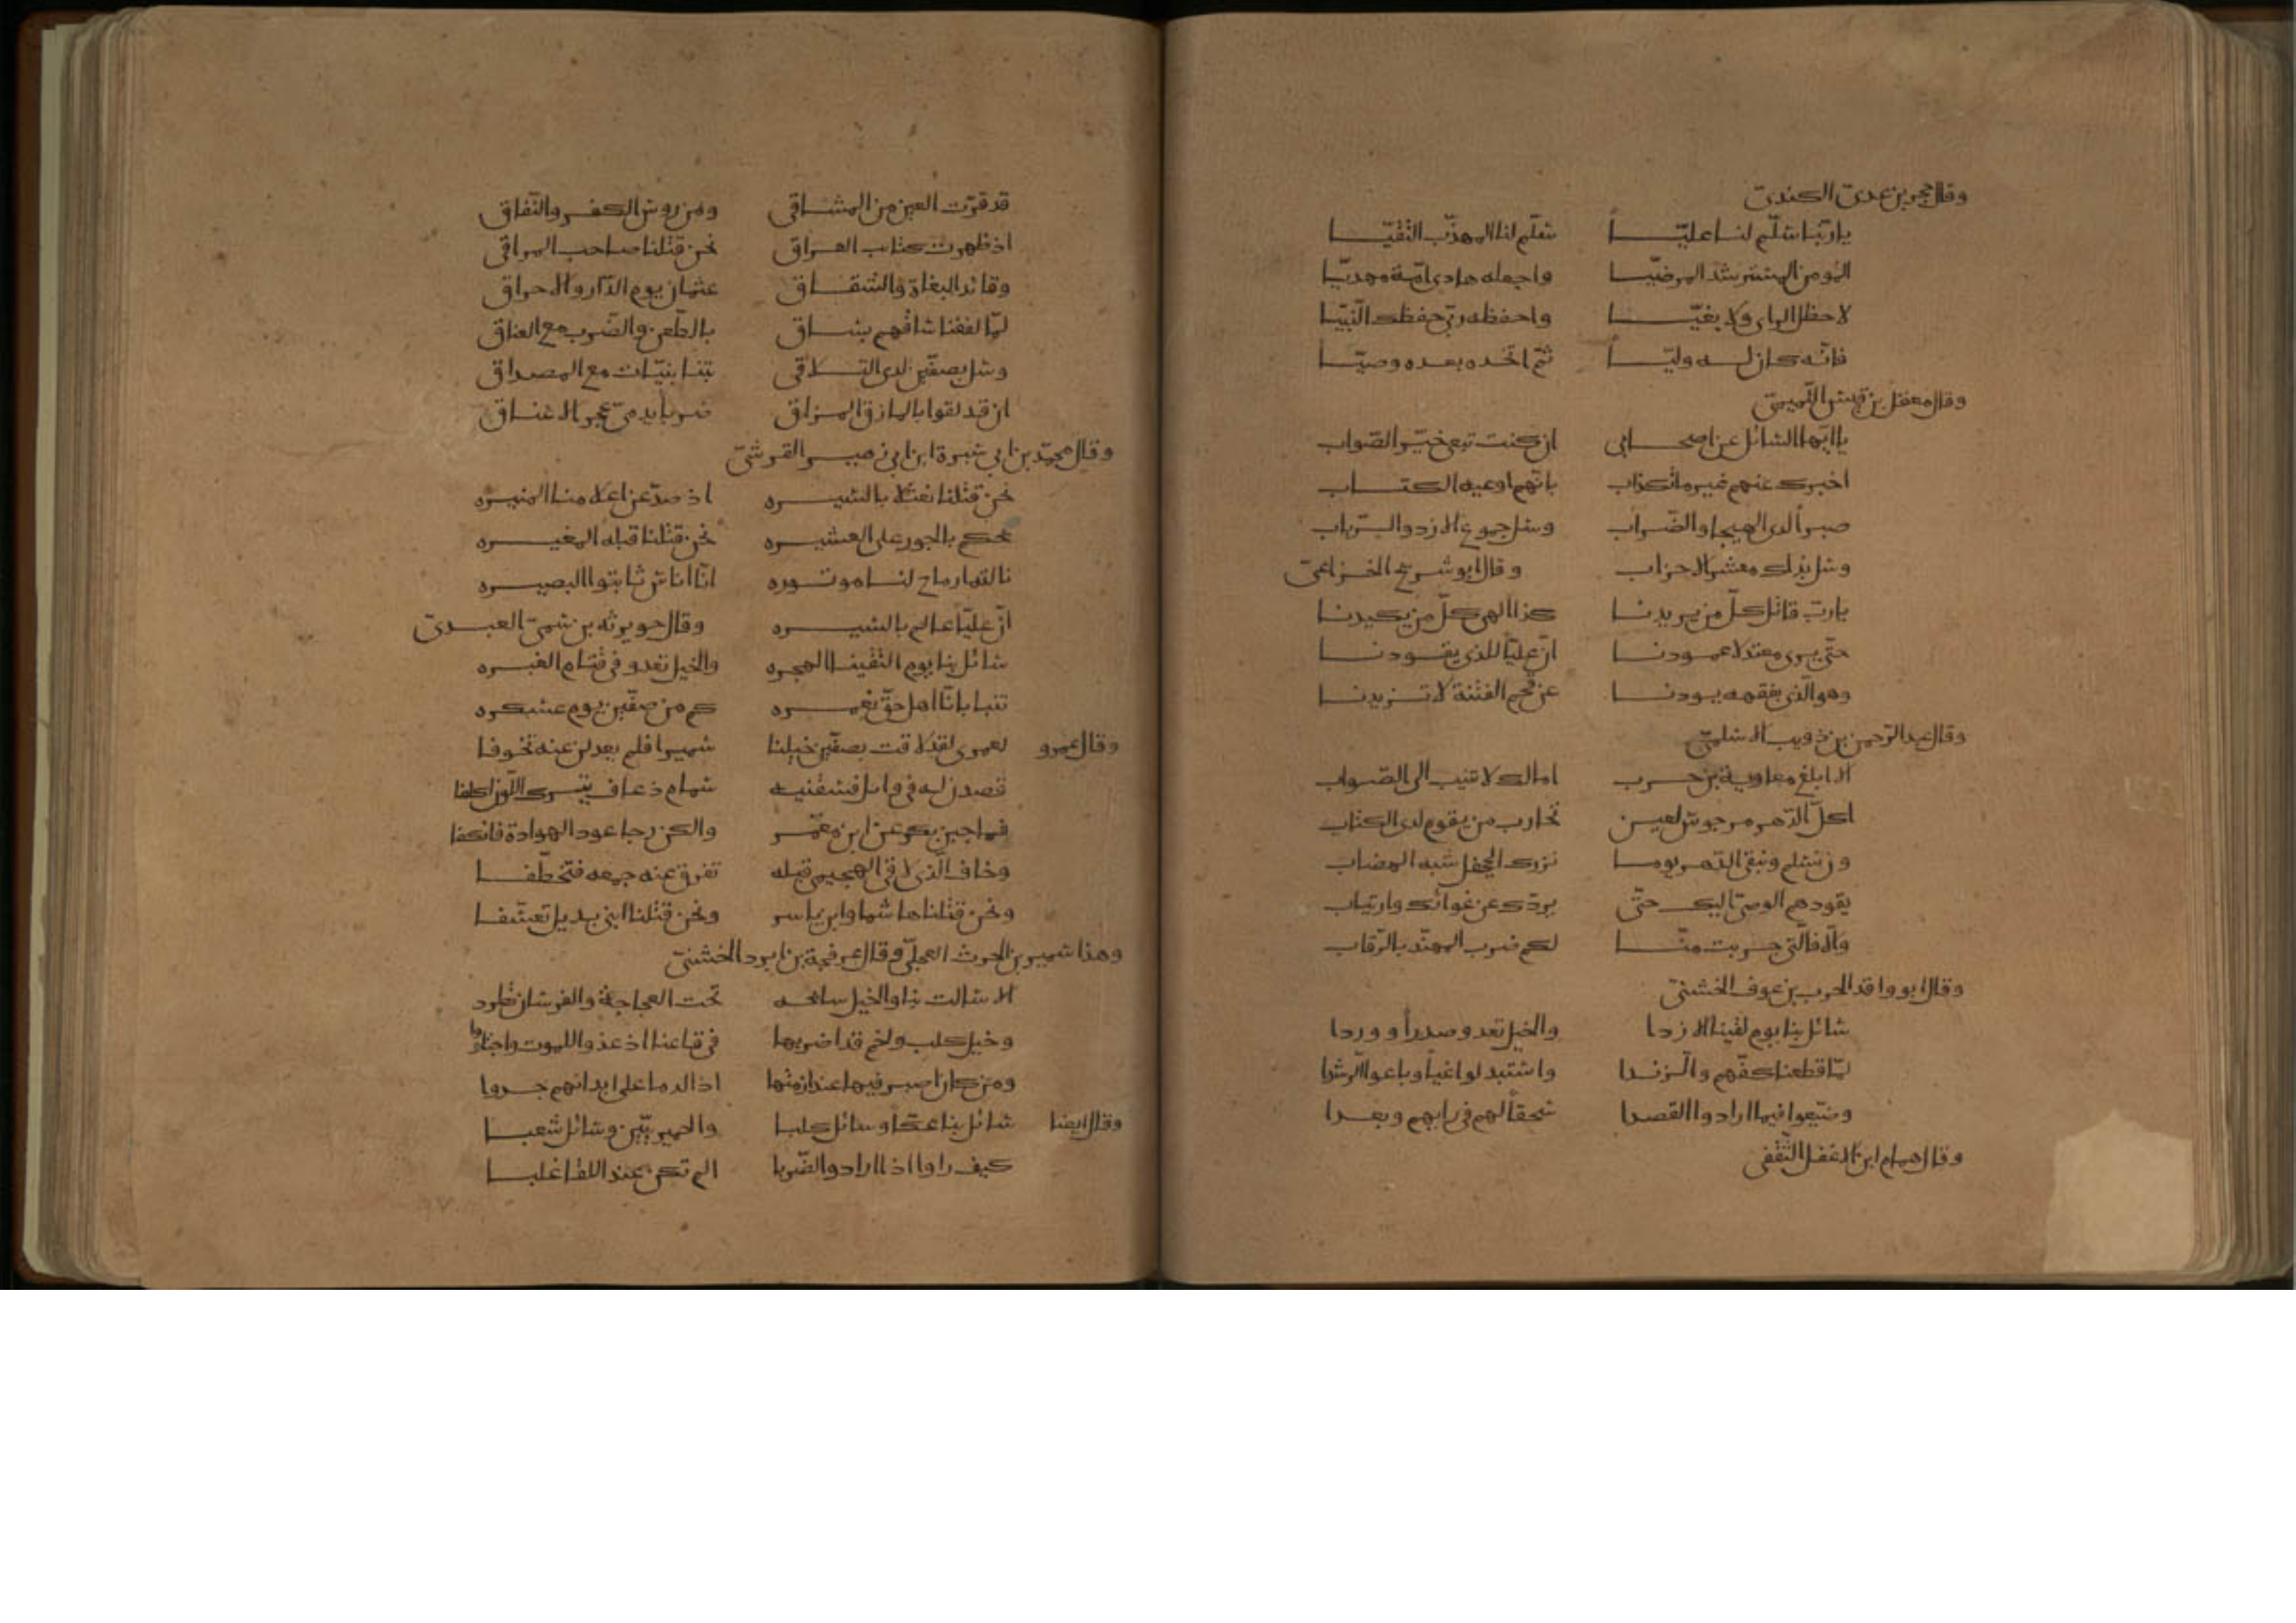 وقال حجر بن عدى الكندى
يا ربنا سلّم لنا عليّا سلّم لنا المهذّب التقيّا
المومن المسترشد المرضيّا واجعله هادى امّة مهديّا
لا خطل الراى ولا بغيّا واحفظه ربّى حفظك النّبيّا
فانّه كان له وليّا ثمّ اتخده بعده وصيّا
وقال معقل بن قيس التّميمىّ
يا ايّها السائل عن اصحابى ان كنت تبغى خيّر الصّواب
اخبرك عنهم غير ما تكذاب بانّهم اوعيه الكتاب
صبراً لدى الهيجا والضّراب وسل جموع الازد والرّباب
وسل بذاك معشر الاحزاب وقال ابو شريح الخزاعىّ
يا ربّ قاتل كلّ من يريدنا كذا الهى كلّ من يكيدنا
حتّى يرى معتدلا عمودنا انّ عليّا للذى يقودنا
وهو الّذى بفقهه يودنا عن قحم الفتنة لا تزيدنا
وقال عبد الرّحمن بن ذويب الاسلمىّ
الا ابلغ معاوية بن حرب امالك لا تنيب الى الصّواب
اكلّ الدّهر مرجوس لعين تحارب من يقوم لدى الكتاب
وان تسلم وتبقى الدّهر يوما نزرك بجحفل شبه الهضاب
يقودهم الوصىّ اليك حتّى يردّك عن غوائك وارتياب
والّا فالّتى جربت منّا لكم ضرب المهنّد بالرّقاب
وقال ابو واقد الحرب بن عوف الخشنىّ
سائل بنا يوم لقينا الازدا والخيل تعدو صدراً ووردا
لمّا قطعنا كفّهم والزندا واستبدلوا غياً وباعوا الرّشدا
وضيّعوا فيما ارادوا القصدا سحقاً لهم فى رايهم وبعدا
وقال همام ابن الاغفل الثّقفى
قد قرّت العين من المشاقى ومن روس الكفر والنّفاق
اذ ظهرت كتاب العراق نحن قتلنا صاحب المراقى
وقائد البغاة والشقاق عثمان يوم الدّار والاحراق
لمّا لففنا ساقهم بساق بالطّعن والضّرب مع العناق
وسل بصفّين لدى التلاقى تنبا بتبيّان مع المصداق
ان قد لقوا بالمازق المزاق ضربا يدمىّ عجر الاعناق
وقال محمّد بن ابى سبرة ابن ابى زهير القرشىّ
نحن قتلنا نعثلا بالسيره اذ صدّ عن اعلامنا المنيره
يحكم بالجور على العشيره نحن قتلنا قبله المغيره
نالته ارماح لنا موتوره انّا اناس ثابتوا البصيره
انّ عليّا عالم بالسيره وقال حويرثه بن سمىّ العبدىّ
سائل بنا يوم التقينا الهجره والخيل تغدو فى قتام الغبره
تنبا بانّا اهل حقّ نغمره كم من صفّين يوم عسكره
وقال عمرو لعمرى لقد لاقت بصفّين خيلنا سميرا فلم يعدلن عنه تخوفا
قصدن له فى وائل فسقنيه سمام ذعاف يترك اللّون اكلفا
فما جبن بكر عن ابن معمّر والكن رجا عود الهوادة فانكفا
وخاف الّذى لاقى الهجيمى قبله تفرق عنه جمعه فتخطّفا
ونحن قتلنا هاشما وابن ياسر ونحن قتلنا ابنى بديل تعسّفا
وهذا سمير بن الحرث العجلىّ وقال عرفجة بن ابرد الخشنىّ
الا سالت بنا والخيل سانحه تحت العجاجة والفرسان تطرد
وخيل كلب ولخم قد اضربها فى قاعنا اذ غذوا للموت واجتلدوا
ومن كان اصبر فيها عند ازمتها اذ الدما على ابدانهم جروا
وقال ايضا سائل بنا عكّا وسائل كلبا والحميريّين وسائل شعبا
كيف راوا اذ ارادوا الضّربا الم تكن عند اللقا غلبا